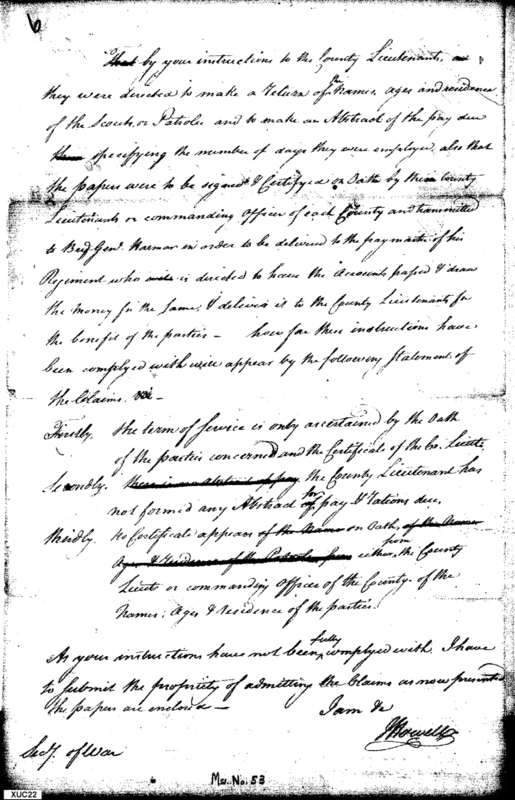 6
That by your instructions to the County Lieutenants
they were directed to make a return of the Names, ages and residence
of the Scouts, or Patroles and to make an Abstract of the pay due
them specifying the number of days they were employed, also that
the papers were to be signed & Certifyed on Oath by the County
Lieutenants or commanding Officer of each County and transmitted
to Brig Genl. Harmar in order to be delivered to the paymaster of his
Regiment who is directed to have the Accounts passed & draw
the money for the same, & deliver it to the County Lieutenants for
the benefit of the parties – how far these instructions have
been complyed with will appear by the following Statement of
the Claims. Viz –
Firstly. the term of Service is only ascertained by the Oath
of the parties concerned and the Certificate of the Co. Lieuts
Secondly. there is no abstract of pay the County Lieutenant has
not formed any Abstract for of pay & rations due,
thirdly. No Certificate appears of the Names on Oath, of the Names
Ages & residence of the Patroles from either from the County
Lieuts or commanding Officer of the County. of the
Names; Ages & residence of the parties.
As your instructions have not been fully complyed with. I have
to submit the propriety of admitting the Claims as now presented
the papers are enclosed –
I am &c
J Howell
Secy. of War
Ms. No. 53
XUC22